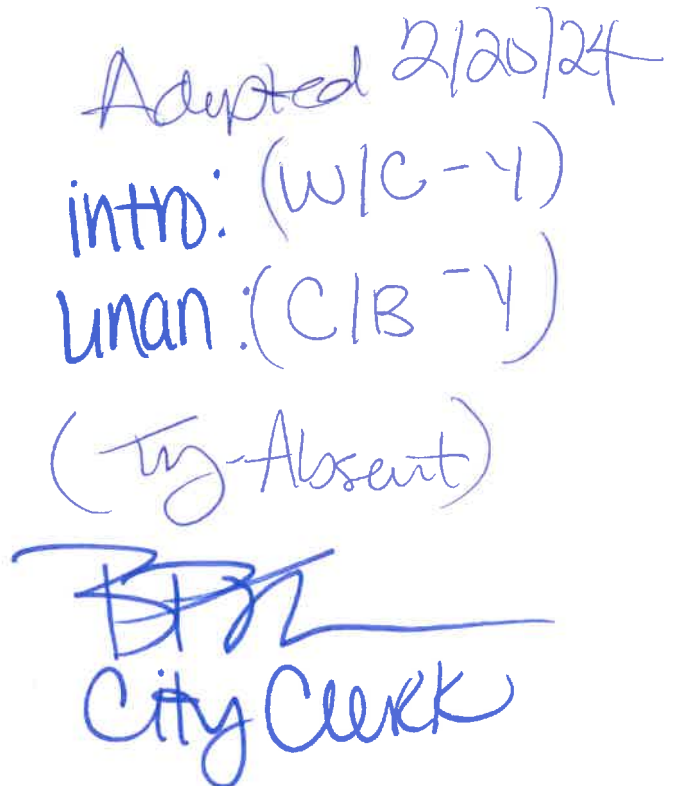 Adopted 2/20/24
intro: (W/C - Y)
unan: (C/B - Y)
(Ty - Absent)
City Clerk